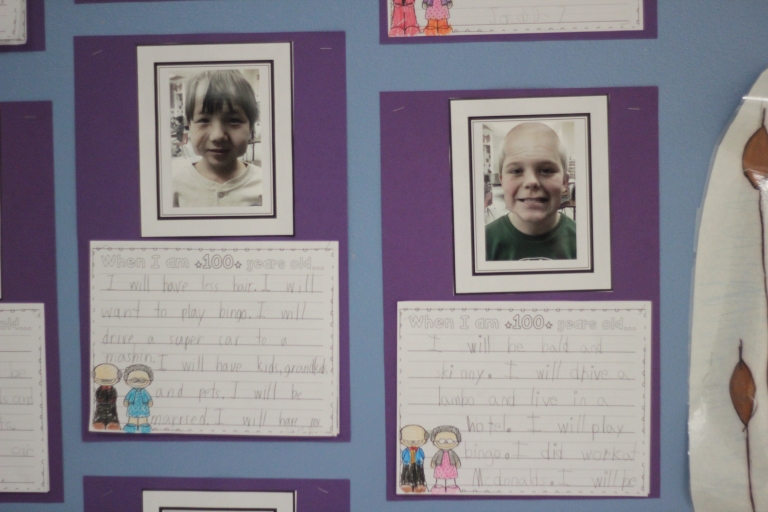 When I am 100 years old...
I will have less hair. I will
want to play bingo. I will
drive a super car to a
mashin. I will have kids, grandkid
and pets. I will be
married. I will have
When I am 100 years old...
I will be bald and
skinny. I will drive a
lambo and live in a
hotel. I will play
bingo. I did work at
McDonalds. I will be
old...
be
car